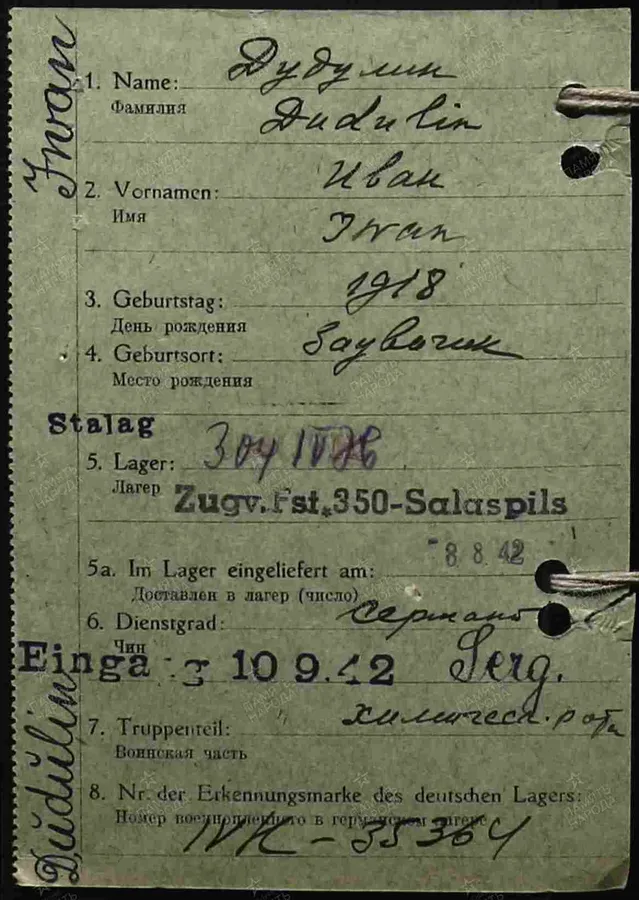 Iwan
Дудулин
1. Name:
Фамилия
Dudulin
Иван
2. Vornamen:
Имя
Iwan
1918
3. Geburtstag:
День рождения
4. Geburtsort:
Место рождения
Stalag
304 IV H
5. Lager:
Лагерь
Zugv. Fst. 350-Salaspils
8 8. 42
5a. Im Lager eingeliefert am:
Доставлен в лагерь (число)
6. Dienstgrad: сержант
Чин
Einga g 10 9.42 Serg.
химическ. рота
7. Truppenteil:
Воинская часть
8. Nr. der Erkennungsmarke des deutschen Lagers:
Номер военнопленного в германском лагере
35364
Dudulin